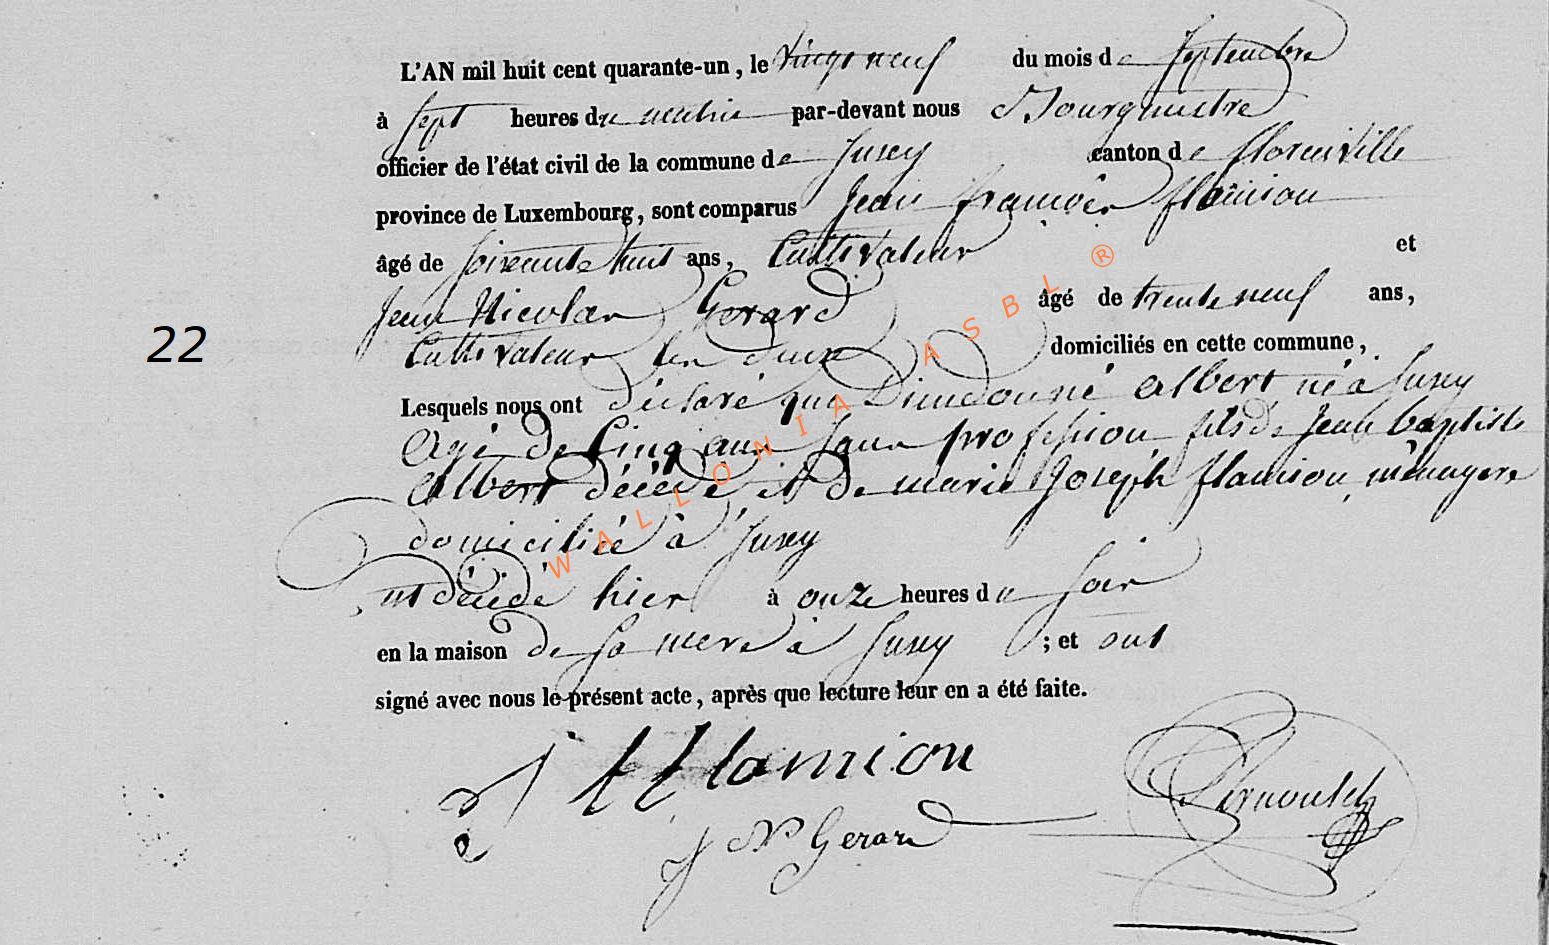 L'AN mil huit cent quarante-un, le vingt neuf du mois de septembre
à sept heures du matin par-devant nous Bourgmestre
officier de l'état civil de la commune de Suxy canton de florenville
province de Luxembourg, sont comparus Jean françois flamion
âgé de soixante huit ans, Cultivateur et
Jean Nicolas Gerard âgé de trente neuf ans,
Cultivateur les deux domiciliés en cette commune,
Lesquels nous ont déclaré que Dieudonné Albert né à Suxy
Agé de Cinq ans sans profession fils de Jean baptiste
Albert décédé et de marie Joseph flamion, ménagere
domiciliée à Suxy
est décédé hier à onze heures du soir
en la maison de sa mere à Suxy ; et ont
signé avec nous le présent acte, après que lecture leur en a été faite.
J f flamion
J N Gerard
22
WALLONIA ASBL ®